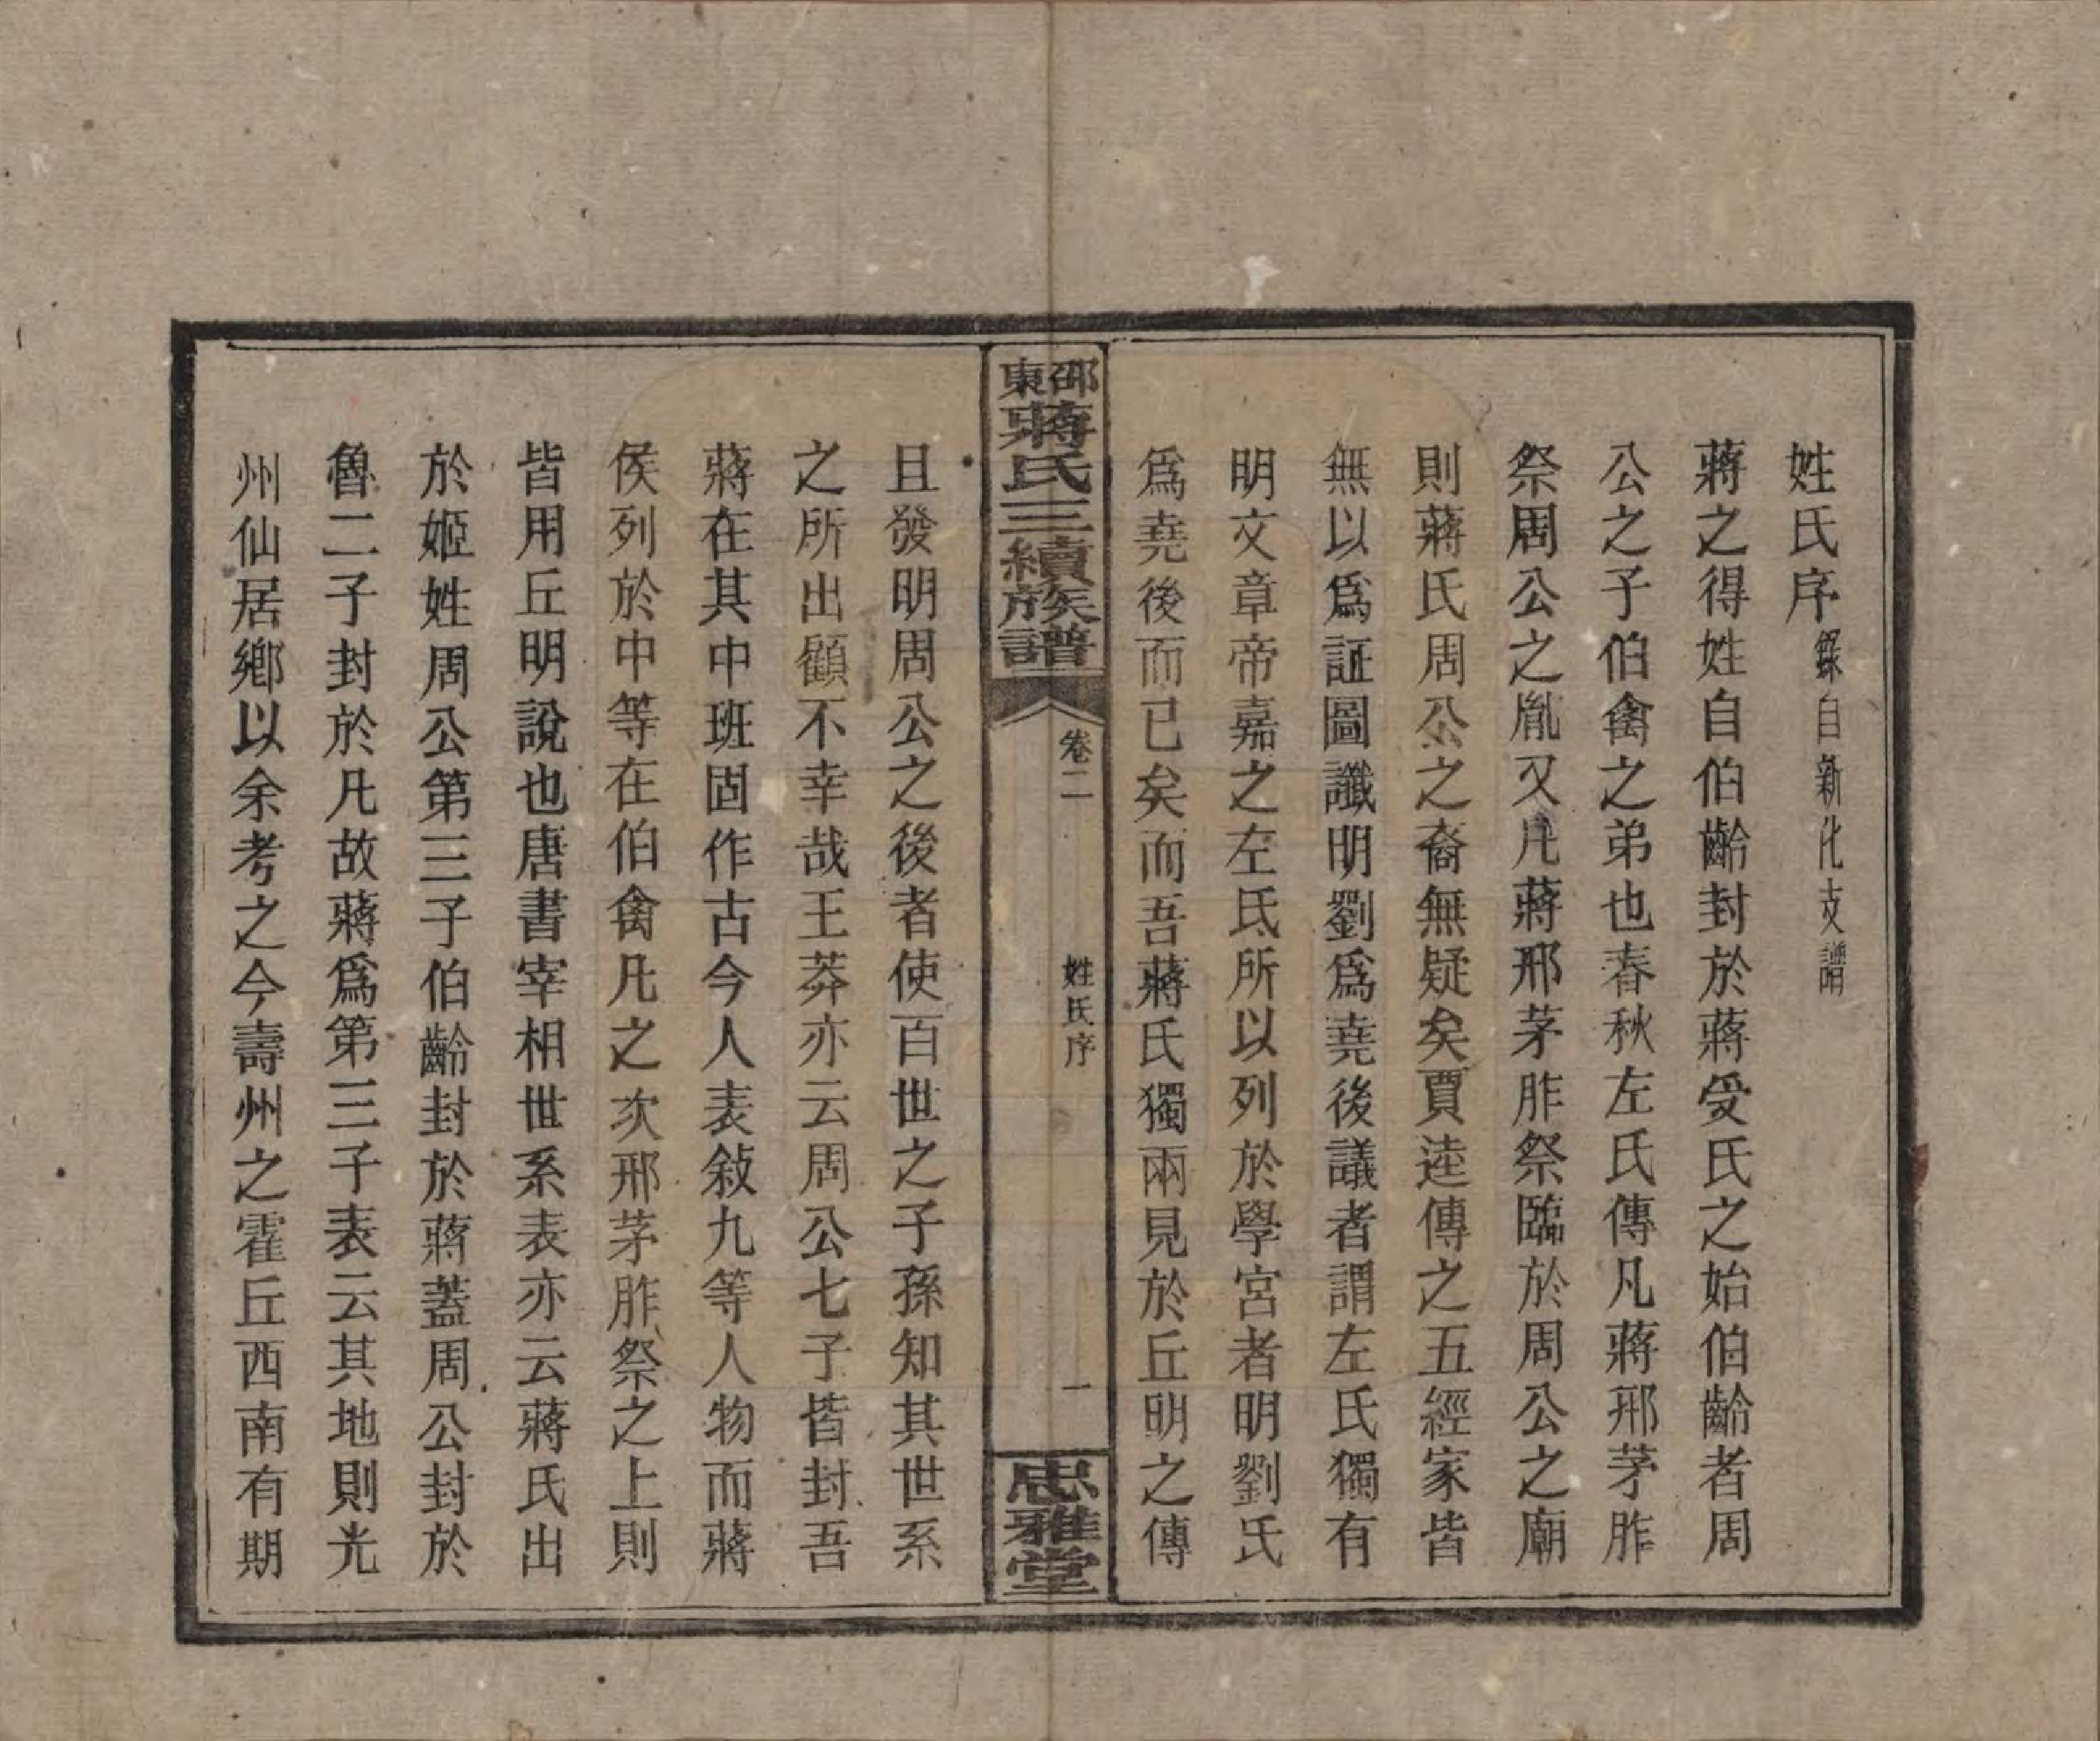 姓氏序 錄自新化支譜
蔣之得姓自伯齡封於蔣受氏之始伯齡者周
公之子伯禽之弟也春秋左氏傳凡蔣邢茅胙
祭周公之胤又凡蔣邢茅胙祭臨於周公之廟
則蔣氏周公之裔無疑矣賈逵傳之五經家皆
無以爲証圖讖明劉爲堯後議者謂左氏獨有
明文章帝嘉之左氏所以列於學宮者明劉氏
爲堯後而已矣而吾蔣氏獨兩見於丘明之傳
邵東蔣氏三續族譜
卷二
姓氏序
一
忠雅堂
且發明周公之後者使百世之子孫知其世系
之所出顧不幸哉王莽亦云周公七子皆封吾
蔣在其中班固作古今人表敍九等人物而蔣
侯列於中等在伯禽凡之次邢茅胙祭之上則
皆用丘明說也唐書宰相世系表亦云蔣氏出
於姬姓周公第三子伯齡封於蔣蓋周公封於
魯二子封於凡故蔣爲第三子表云其地則光
州仙居鄉以余考之今壽州之霍丘西南有期